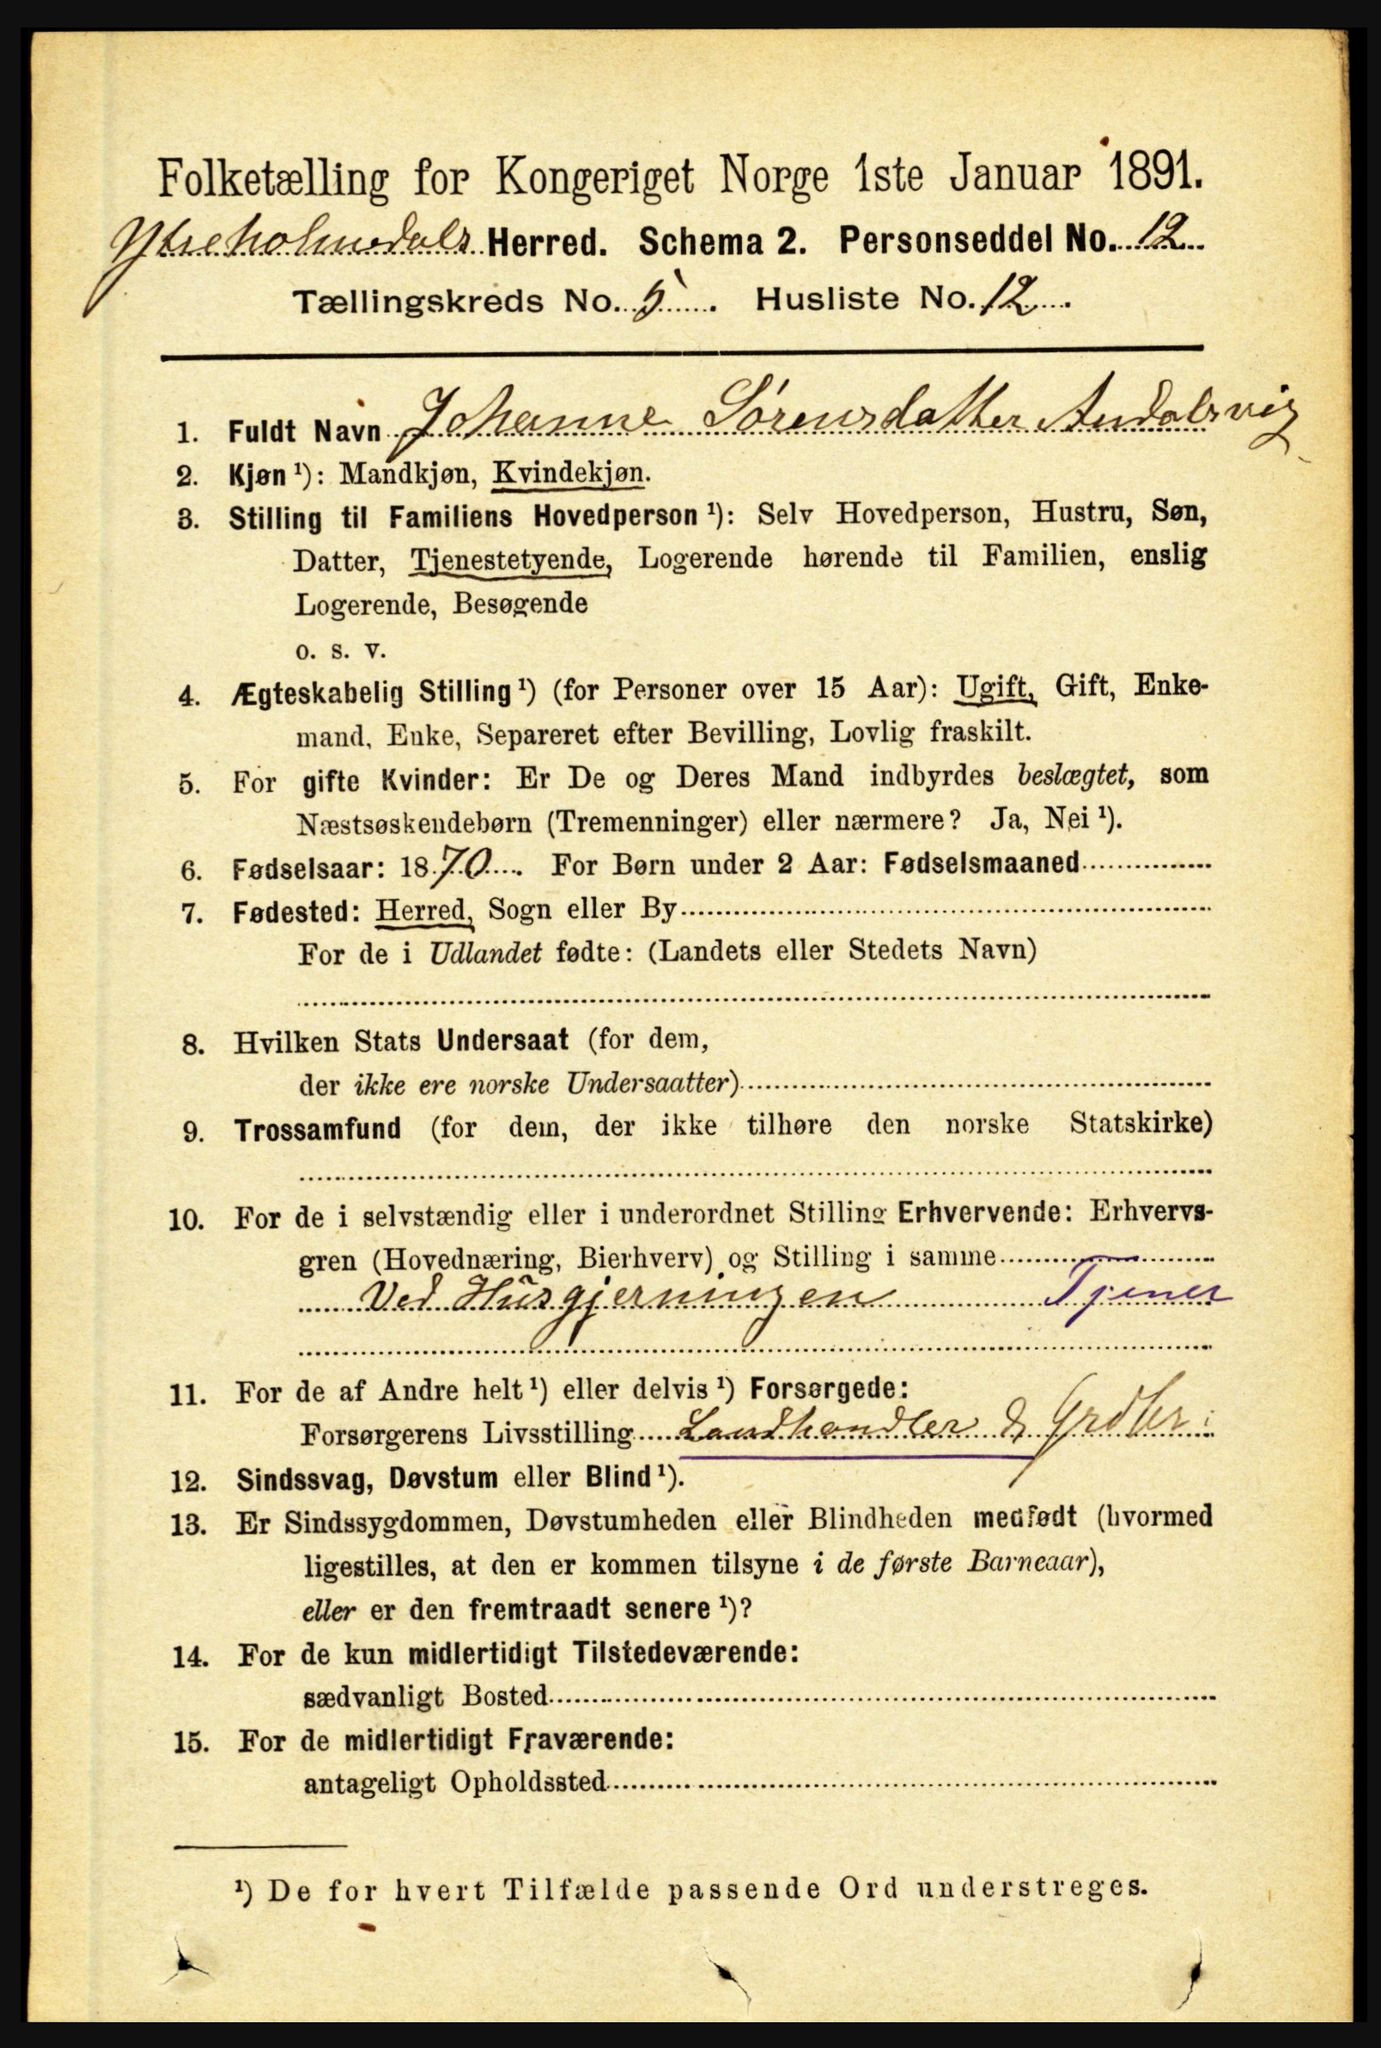 Folketælling for Kongeriget Norge 1ste Januar 1891.
Ytreholmedals Herred. Schema 2. Personseddel No. 12
Tællingskreds No. 5. Husliste No. 12.
1. Fuldt Navn Johanne Sørensdatter Andalsvig
2. Kjøn ¹): Mandkjøn, Kvindekjøn.
3. Stilling til Familiens Hovedperson ¹): Selv Hovedperson, Hustru, Søn,
Datter, Tjenestetyende, Logerende hørende til Familien, enslig
Logerende, Besøgende
o. s. v.
4. Ægteskabelig Stilling ¹) (for Personer over 15 Aar): Ugift, Gift, Enke-
mand, Enke, Separeret efter Bevilling, Lovlig fraskilt.
5. For gifte Kvinder: Er De og Deres Mand indbyrdes beslægtet, som
Næstsøskendebørn (Tremenninger) eller nærmere? Ja, Nei ¹).
6. Fødselsaar: 1870. For Børn under 2 Aar: Fødselsmaaned
7. Fødested: Herred, Sogn eller By
For de i Udlandet fødte: (Landets eller Stedets Navn)
8. Hvilken Stats Undersaat (for dem,
der ikke ere norske Undersaatter)
9. Trossamfund (for dem, der ikke tilhøre den norske Statskirke)
10. For de i selvstændig eller i underordnet Stilling Erhvervende: Erhvervs-
gren (Hovednæring, Bierhverv) og Stilling i samme
Ved Husgjerningen Tjener
11. For de af Andre helt ¹) eller delvis ¹) Forsørgede:
Forsørgerens Livsstilling Landhandler & Grdbr:
12. Sindssvag, Døvstum eller Blind ¹).
13. Er Sindssygdommen, Døvstumheden eller Blindheden medfødt (hvormed
ligestilles, at den er kommen tilsyne i de første Barneaar),
eller er den fremtraadt senere ¹)?
14. For de kun midlertidigt Tilstedeværende:
sædvanligt Bosted
15. For de midlertidigt Fraværende:
antageligt Opholdssted
¹) De for hvert Tilfælde passende Ord understreges.